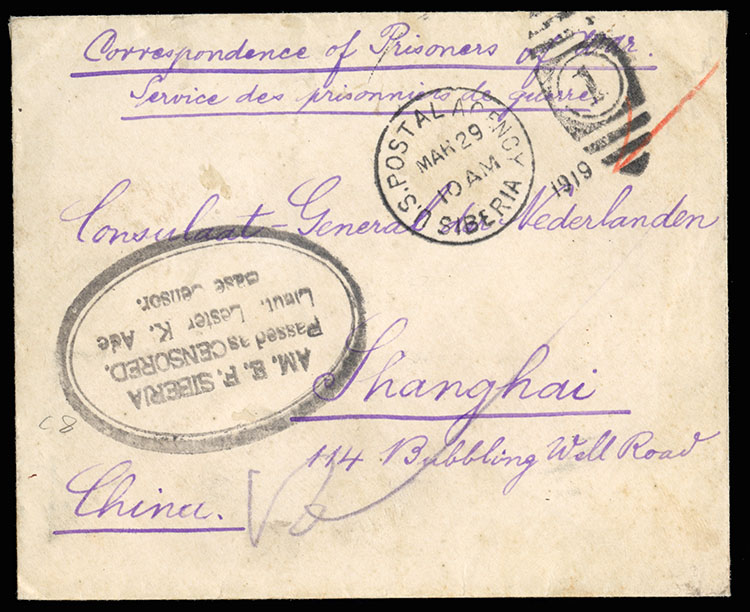 Correspondence of Prisoners of War.
Service des prisonniers de guerre
U.S. POSTAL AGENCY
MAR 29
10 AM
SIBERIA
1919
1
Consulaat-General der Nederlanden
AM. E. F. SIBERIA
Passed as CENSORED.
Lieut. Lester K. Ade
Base Censor.
Shanghai
114 Bubbling Well Road
China.
C8